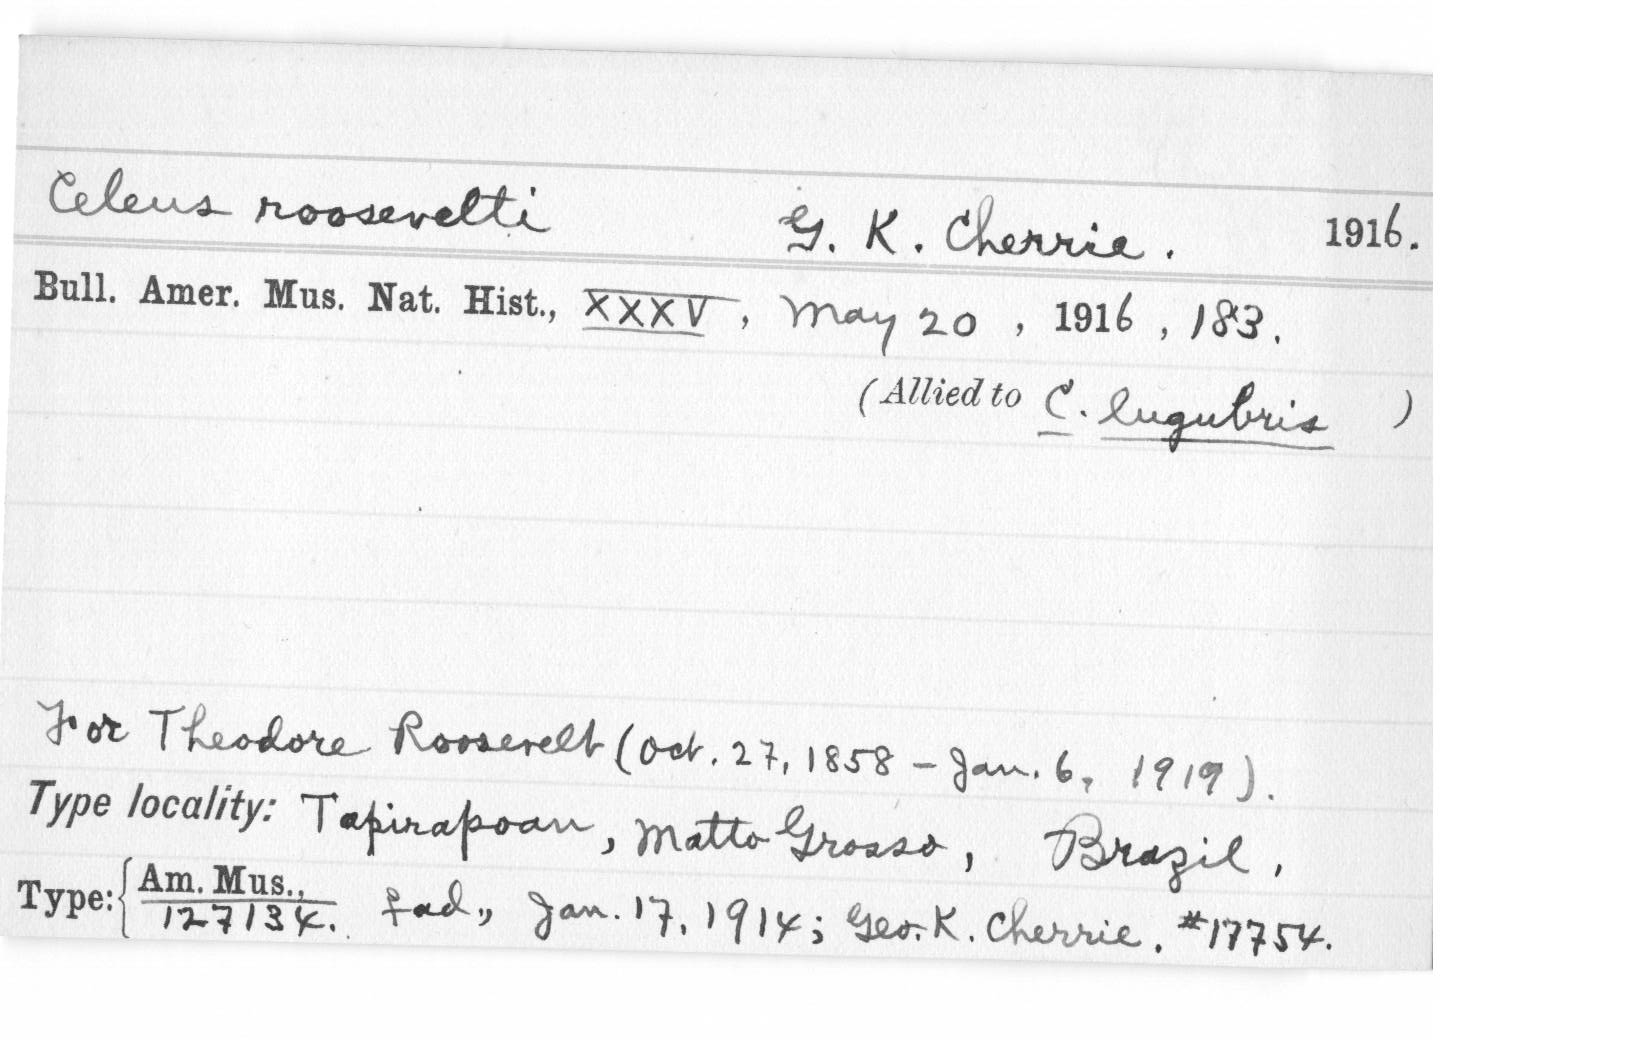 Celeus roosevelti G. K. Cherrie. 1916.
Bull. Amer. Mus. Nat. Hist., XXXV, May 20, 1916, 183.
(Allied to C. lugubris )
For Theodore Roosevelt (Oct. 27, 1858 – Jan. 6, 1919).
Type locality: Tapirapoan, Matto Grosso, Brazil.
Type: { Am. Mus., 127134. ♀ad., Jan. 17, 1914; Geo. K. Cherrie. #17754.